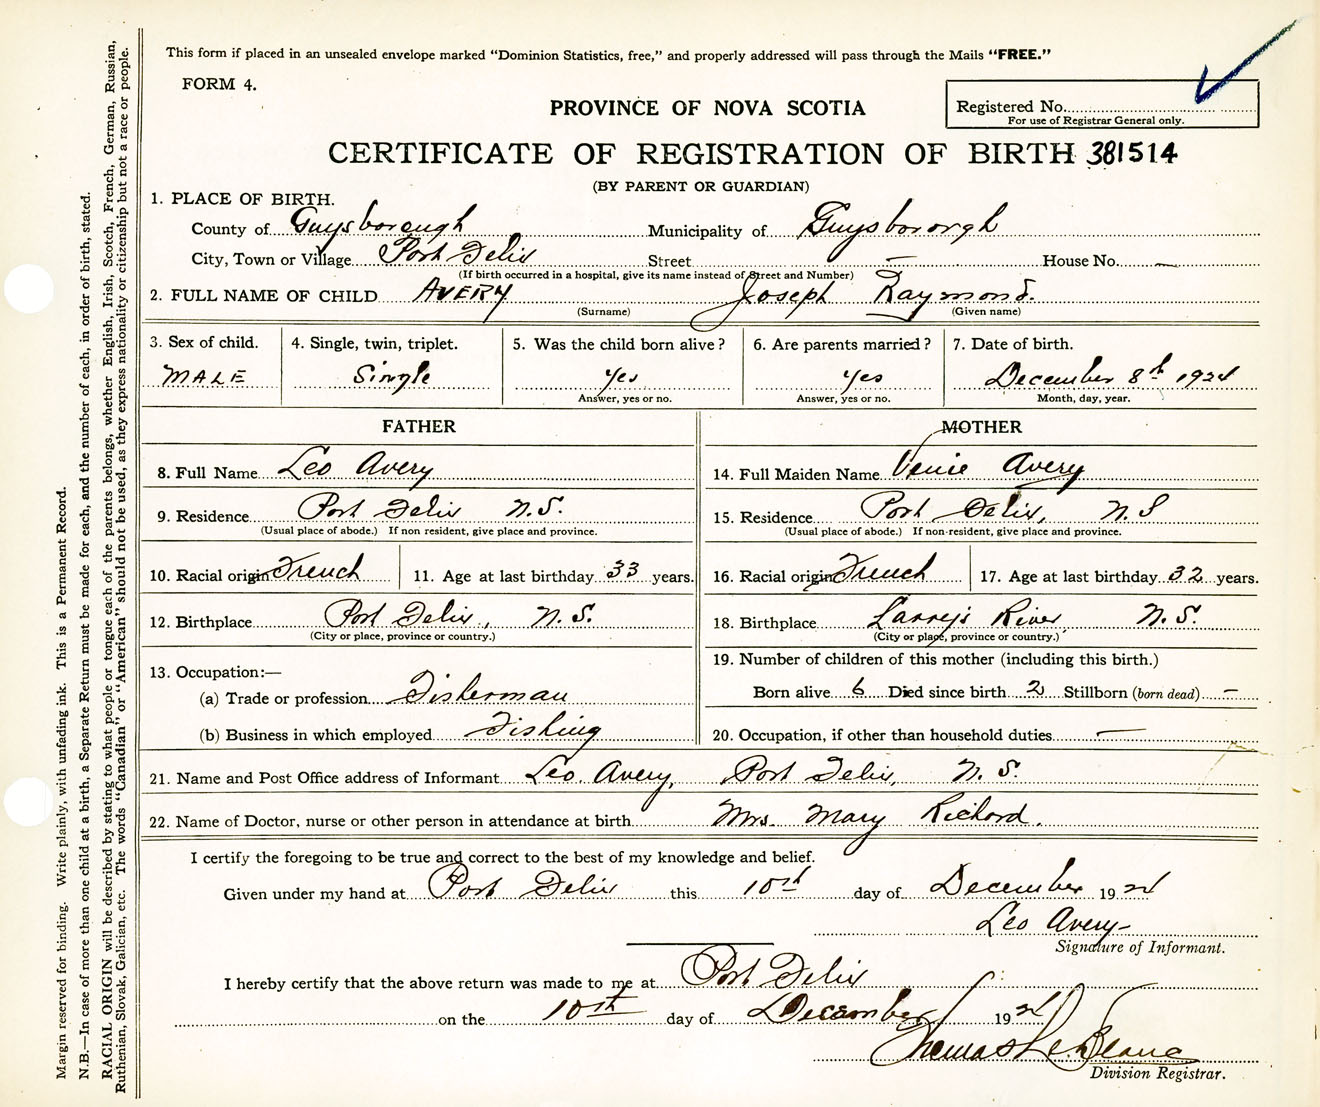 This form if placed in an unsealed envelope marked “Dominion Statistics, free,” and properly addressed will pass through the Mails “FREE.”
FORM 4.
PROVINCE OF NOVA SCOTIA
Registered No.
For use of Registrar General only.
CERTIFICATE OF REGISTRATION OF BIRTH 381514
(BY PARENT OR GUARDIAN)
1. PLACE OF BIRTH.
County of Guysborough Municipality of Guysbororgh
City, Town or Village Port Felix Street — House No. —
(If birth occurred in a hospital, give its name instead of Street and Number)
2. FULL NAME OF CHILD AVERY Joseph Raymond.
(Surname) (Given name)
3. Sex of child. 4. Single, twin, triplet. 5. Was the child born alive? 6. Are parents married? 7. Date of birth.
MALE Single Yes Yes December 8th 1924
Answer, yes or no. Answer, yes or no. Month, day, year.
FATHER MOTHER
8. Full Name Leo Avery 14. Full Maiden Name Venie Avery
9. Residence Port Felix N.S. 15. Residence Port Felix, N.S
(Usual place of abode.) If non resident, give place and province. (Usual place of abode.) If non-resident, give place and province.
10. Racial origin French 11. Age at last birthday 33 years. 16. Racial origin French 17. Age at last birthday 32 years.
12. Birthplace Port Felix, N.S. 18. Birthplace Larry's River, N.S.
(City or place, province or country.) (City or place, province or country.)
13. Occupation:— 19. Number of children of this mother (including this birth.)
(a) Trade or profession Fisherman Born alive 6 Died since birth 2 Stillborn (born dead) —
(b) Business in which employed Fishing 20. Occupation, if other than household duties —
21. Name and Post Office address of Informant Leo Avery, Port Felix, N.S.
22. Name of Doctor, nurse or other person in attendance at birth Mrs. Mary Richard.
I certify the foregoing to be true and correct to the best of my knowledge and belief.
Given under my hand at Port Felix this 10th day of December 1924
Leo Avery
Signature of Informant.
I hereby certify that the above return was made to me at Port Felix
on the 10th day of December 1924
Thomas LeBlanc
Division Registrar.
Margin reserved for binding. Write plainly, with unfading ink. This is a Permanent Record.
N.B.—In case of more than one child at a birth, a Separate Return must be made for each, and the number of each, in order of birth, stated.
RACIAL ORIGIN will be described by stating to what people or tongue each of the parents belongs, whether English, Irish, Scotch, French, German, Russian,
Ruthenian, Slovak, Galician, etc. The words “Canadian” or “American” should not be used, as they express nationality or citizenship but not a race or people.